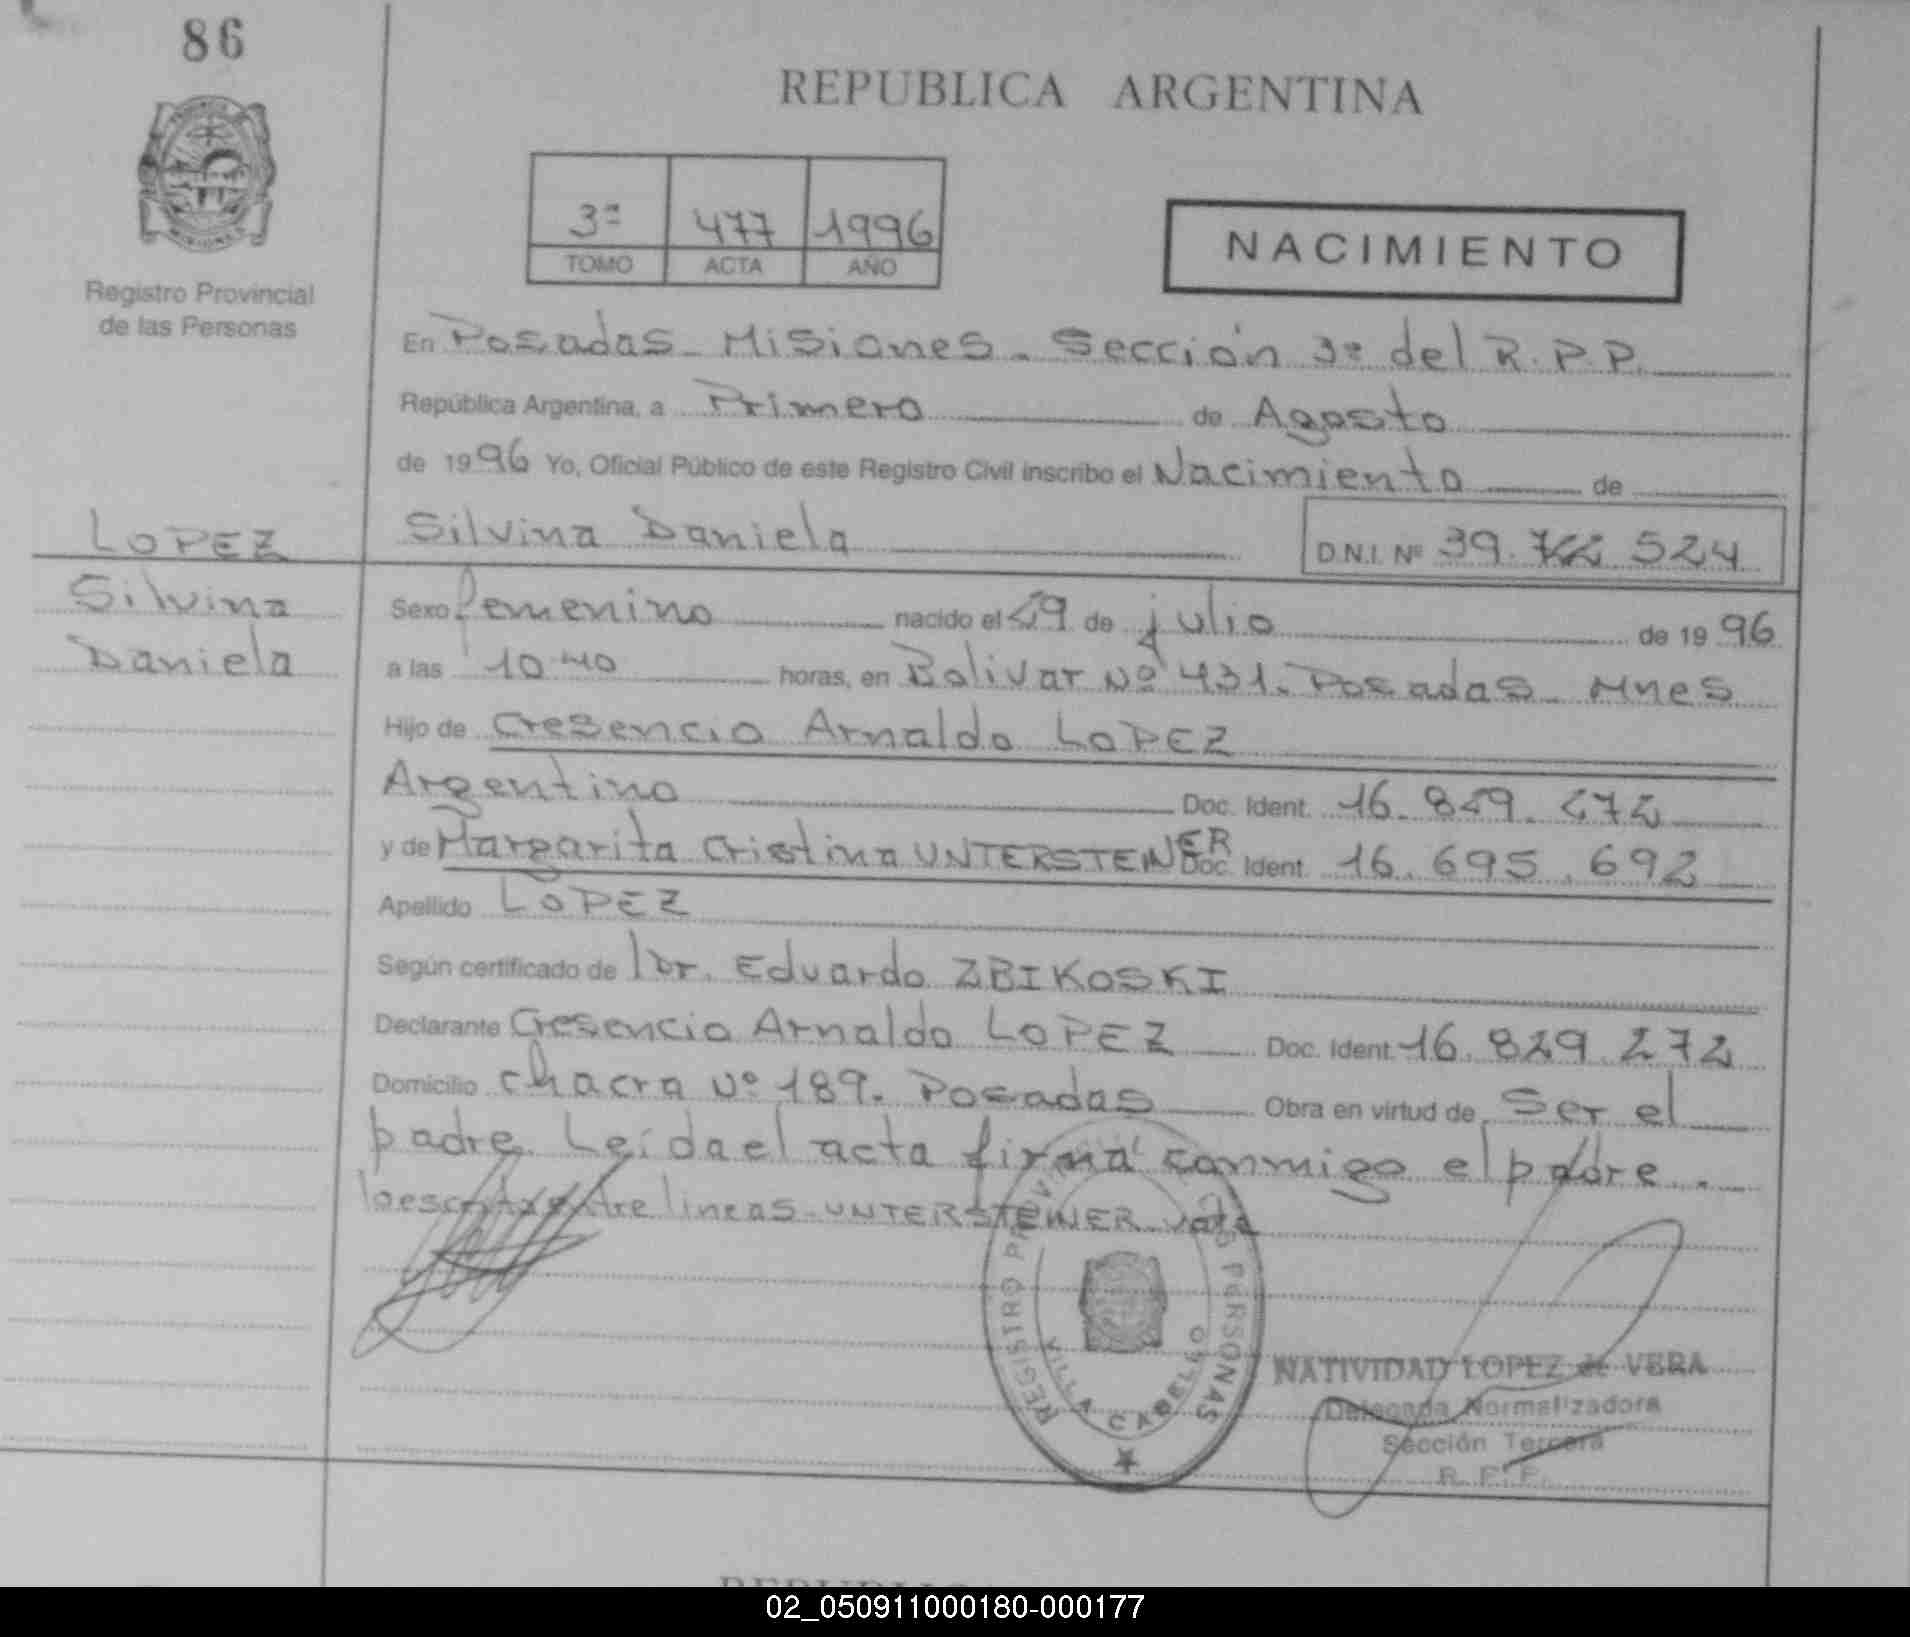 86
REPUBLICA ARGENTINA
3ª 477 1996
TOMO ACTA AÑO
NACIMIENTO
Registro Provincial
de las Personas
En Posadas - Misiones - Sección 3ª del R.P.P.
República Argentina, a Primero de Agosto
de 1996 Yo, Oficial Público de este Registro Civil inscribo el Nacimiento de
LOPEZ
Silvina Daniela
D.N.I. Nº 39. 524
Silvina
Daniela
Sexo femenino nacido el 29 de julio de 1996
a las 10 40 horas, en Bolivar Nº 431. Posadas - Mnes
Hijo de Cresencio Arnaldo LOPEZ
Argentino Doc. Ident. 16.829.272
y de Margarita Cristina UNTERSTEINER Doc. Ident. 16.695.692
Apellido LOPEZ
Según certificado de Dr. Eduardo ZBIKOSKI
Declarante Cresencio Arnaldo LOPEZ Doc. Ident. 16.829.272
Domicilio chacra Nº 189. Posadas Obra en virtud de ser el
padre. Leída el acta firma conmigo el padre.
lo escrito entre lineas - UNTERSTEINER vale
REGISTRO PROVINCIAL DE LAS PERSONAS
VILLA CABELLO
NATIVIDAD LOPEZ de VERA
Delegada Normalizadora
Sección Tercera
R. P. P.
02_050911000180-000177